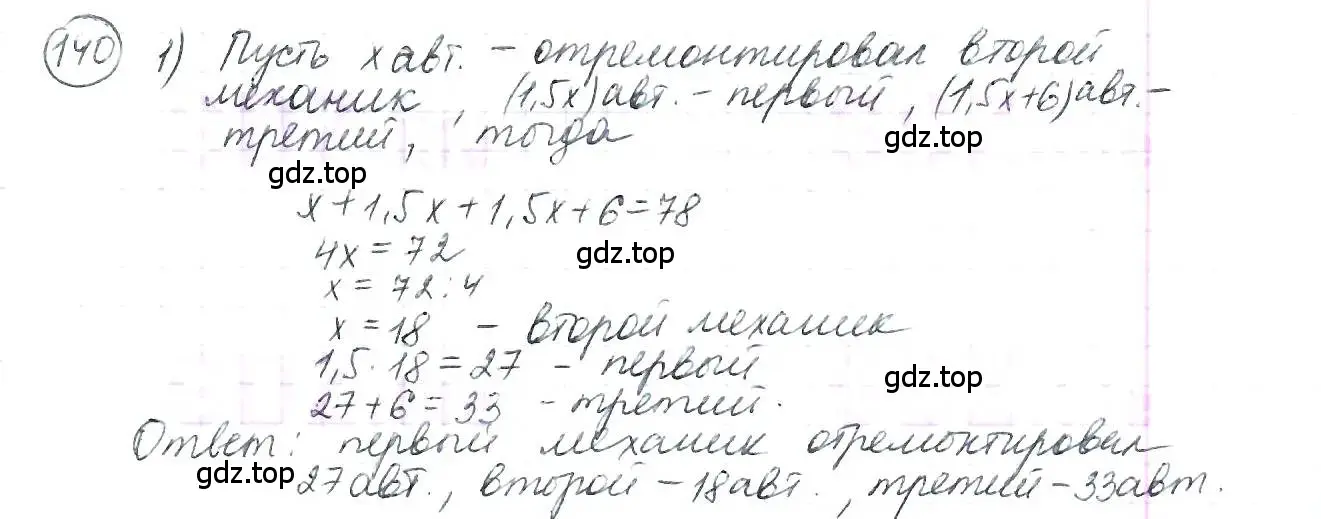 140 1) Пусть x авт. - отремонтировал второй
механик, (1,5x) авт. - первый, (1,5x+6) авт. -
gdz.top
третий, тогда
gdz.top
x+1,5x+1,5x+6=78
4x = 72
gdz.top
x = 72:4
x = 18 - второй механик
1,5 · 18 = 27 - первый
gdz.top
27+6 = 33 - третий.
Ответ: первый механик отремонтировал
gdz.top
27 авт., второй - 18 авт., третий - 33 авт.